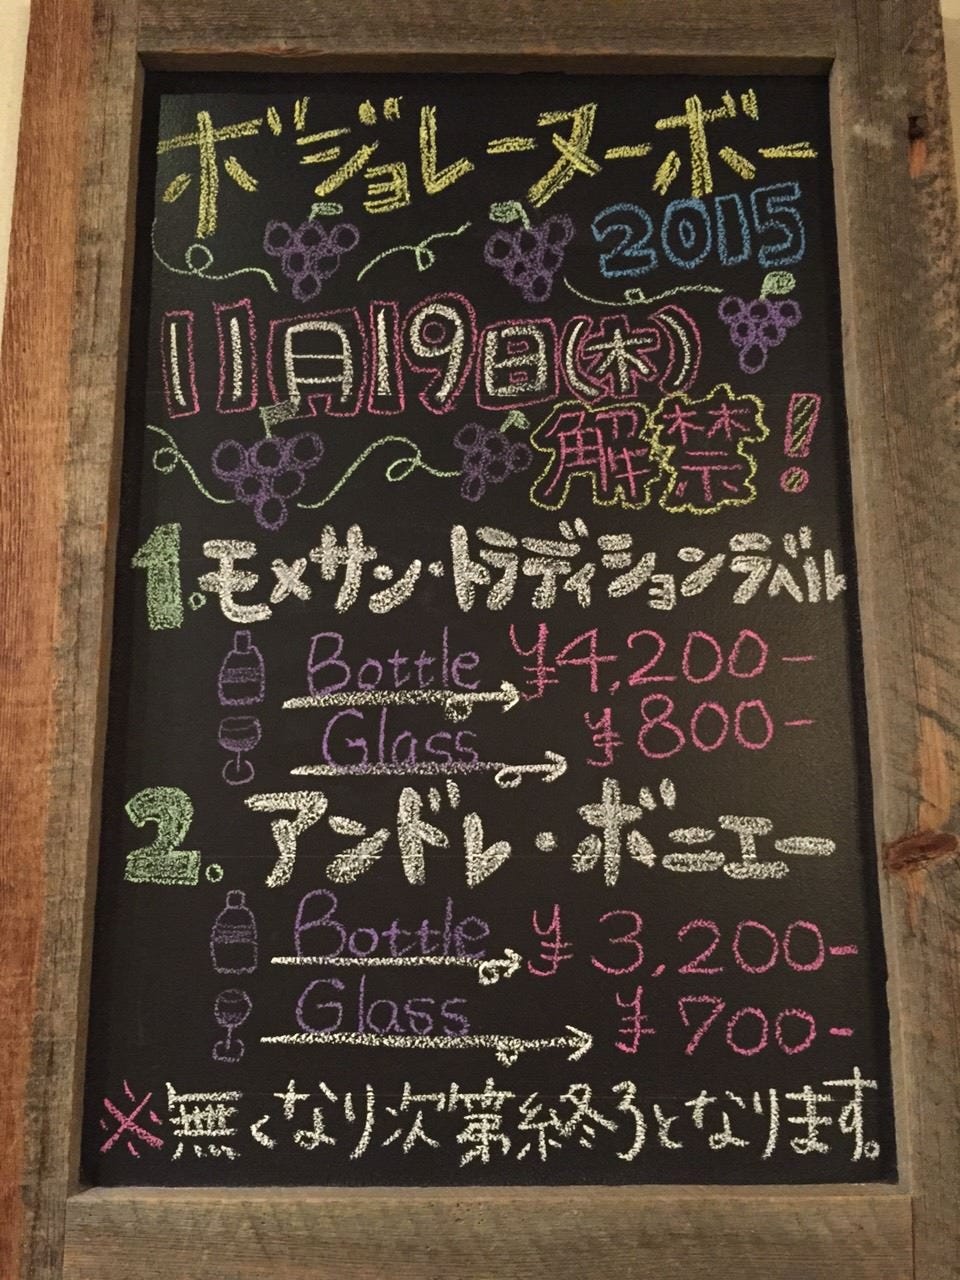 ボジョレーヌーボー
2015
11月19日(木)
解禁!
1.モメサン・トラディションラベル
Bottle ¥4,200-
Glass ¥800-
2.アンドレ・ボニエー
Bottle ¥3,200-
Glass ¥700-
※無くなり次第終了となります。